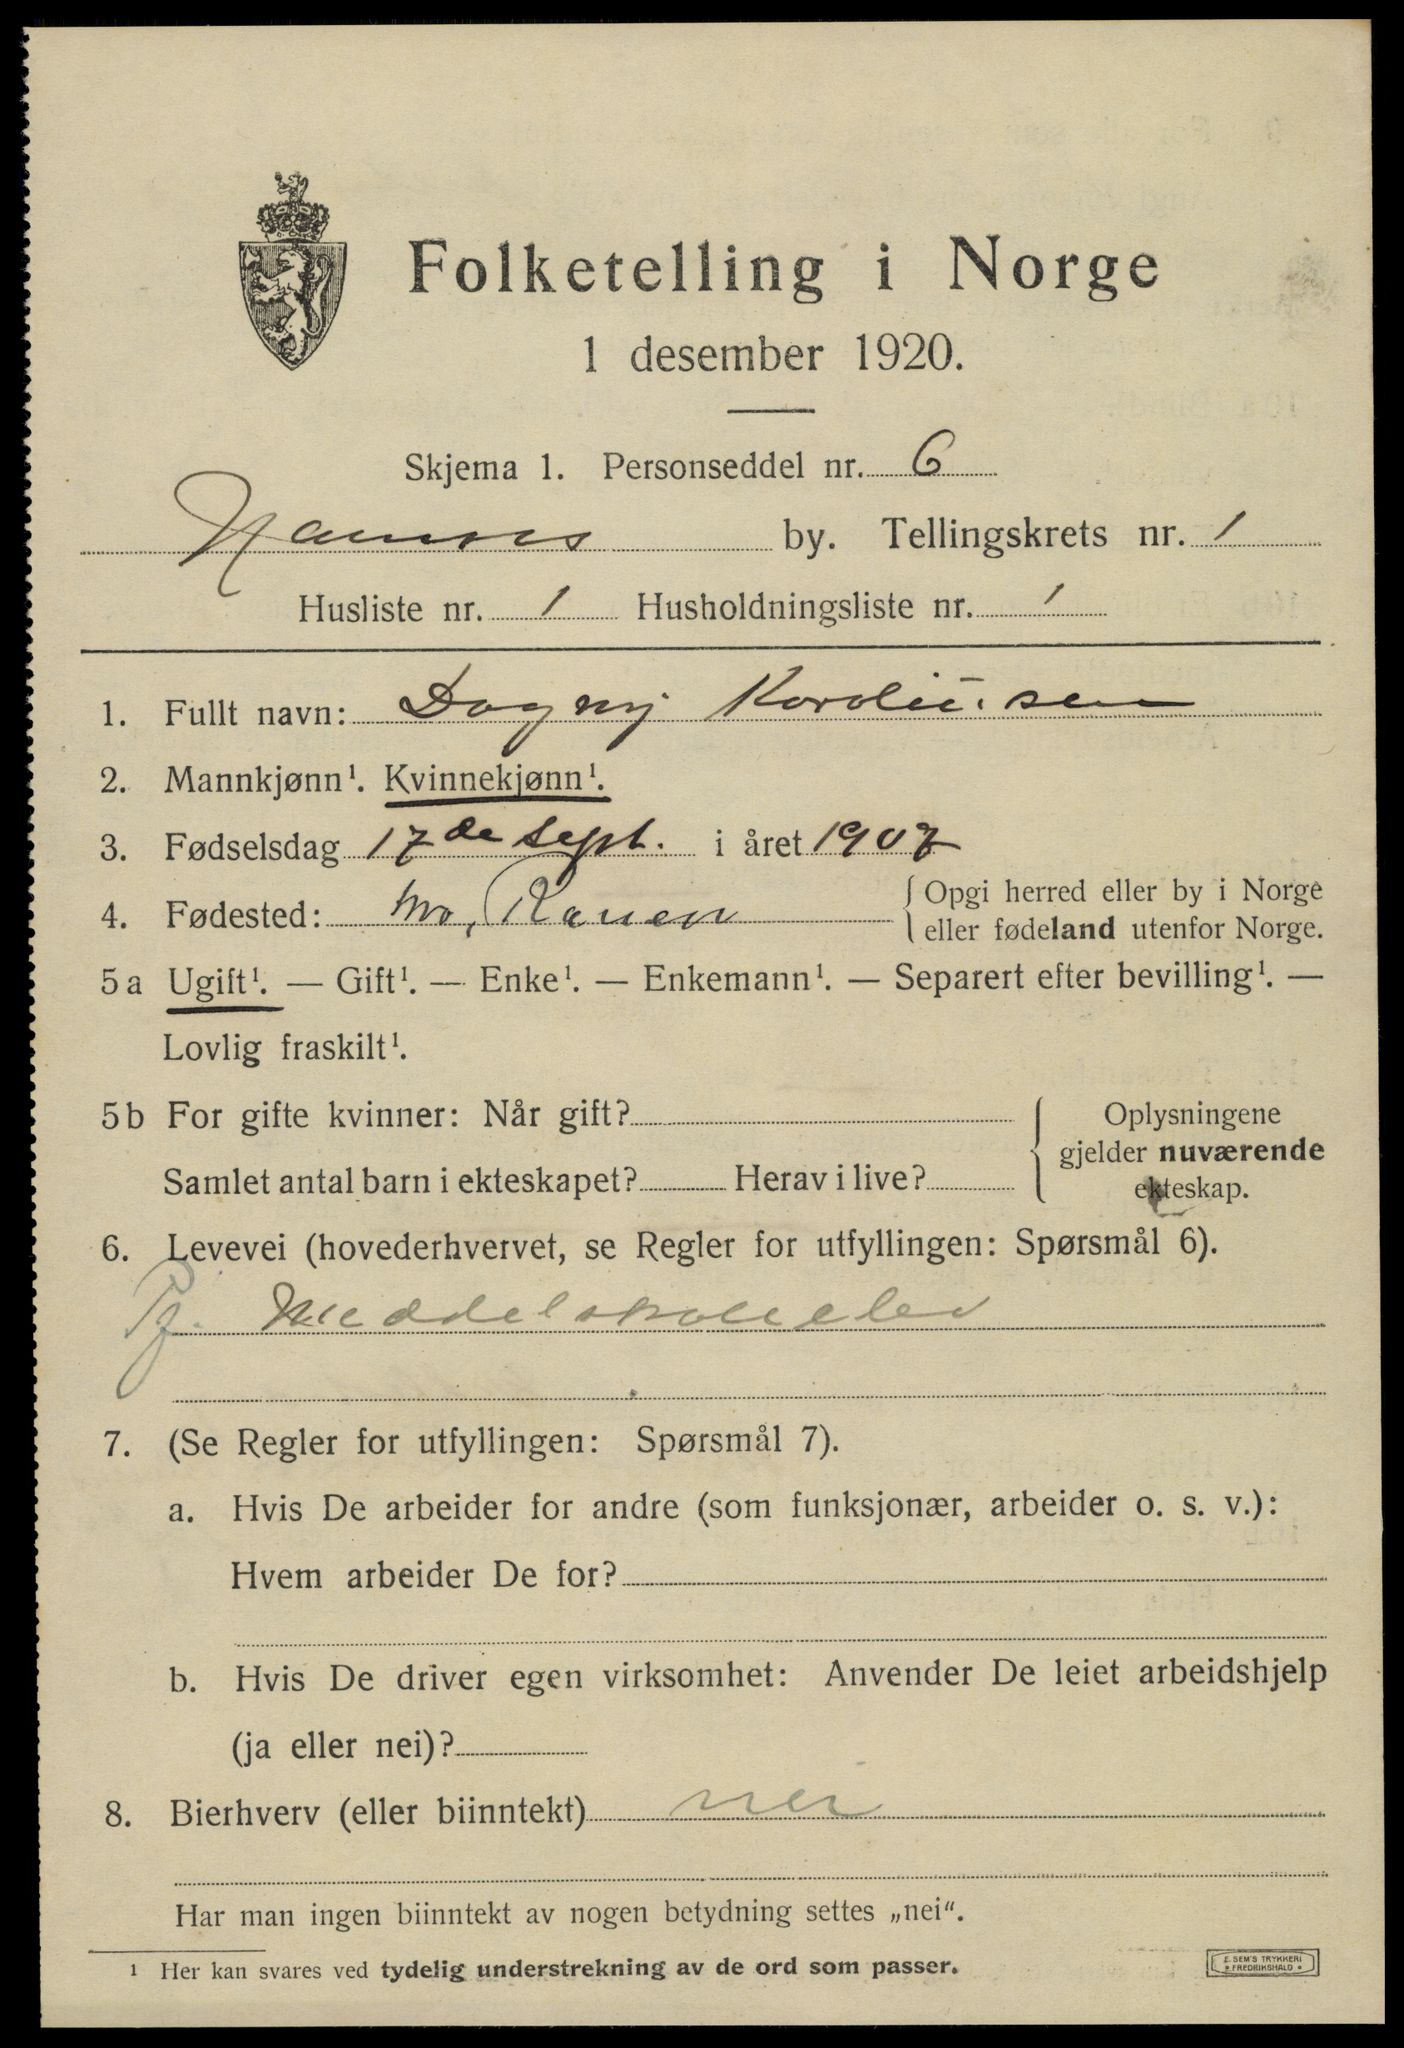 Folketelling i Norge
1 desember 1920.
Skjema 1. Personseddel nr. 6
Namsos by. Tellingskrets nr. 1
Husliste nr. 1 Husholdningsliste nr. 1
1. Fullt navn: Dagny Karoliussen
2. Mannkjønn¹. Kvinnekjønn¹.
3. Fødselsdag 17de sept. i året 1907
4. Fødested: Mo, Ranen { Opgi herred eller by i Norge
eller fødeland utenfor Norge.
5a Ugift¹. — Gift¹. — Enke¹. — Enkemann¹. — Separert efter bevilling¹. —
Lovlig fraskilt¹.
5b For gifte kvinner: Når gift? { Oplysningene
gjelder nuværende
Samlet antal barn i ekteskapet? Herav i live? ekteskap.
6. Levevei (hovederhvervet, se Regler for utfyllingen: Spørsmål 6).
Meddelskoleelev
7. (Se Regler for utfyllingen: Spørsmål 7).
a. Hvis De arbeider for andre (som funksjonær, arbeider o. s. v.):
Hvem arbeider De for?
b. Hvis De driver egen virksomhet: Anvender De leiet arbeidshjelp
(ja eller nei)?
8. Bierhverv (eller biinntekt) nei
Har man ingen biinntekt av nogen betydning settes „nei“.
¹ Her kan svares ved tydelig understrekning av de ord som passer.
E. SEM'S TRYKKERI
* FREDRIKSHALD *